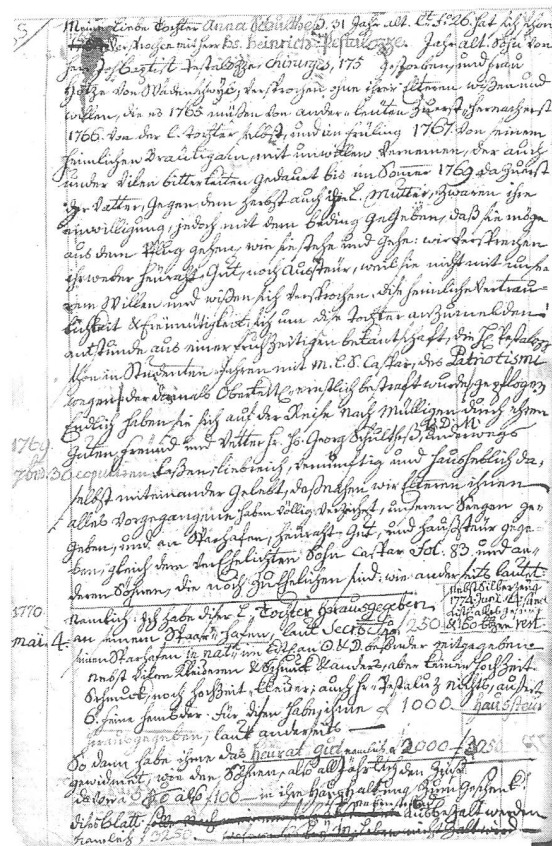 Meine Liebe Tochter Anna Schultheß, 31 Jahr alt. hat sich schon
mit Herr Hs. Heinrich Pestalozze. Jahr alt. Sohn von
Herr Joh Baptist Pestalozze Chirurgs, 175 gestorben, und frau
Hotze von Wädenschwyl, versprochen, ohne ihrer Elteren wißen und
willen, die es 1765 müßen von andern leuten zuerst, hernacher
1766. von der l. tochter selbst, und im früling 1767. von seinem
heimlichen Bräutigam, mit unwillen vernemen, der auch
under vilen bitterkeiten gedauret bis im Sommer 1769 da zuerst
der Vatter, gegen dem herbst auch die L. Mutter, zwaren ihre
einwilligung, jedoch mit dem beding gegeben, daß sie möge
aus dem gehen, wie sie stehe und gehe: wir versprechen
ihr weder heüraht-Gut, noch Aussteür, weil sie nicht mit unse
rem Willen und wißen sich versprochen. die heimliche Vertrau-
lichkeit & freymütigkeit, sich um die tochter anzumelden
entstunde aus einer frühzeitigen bekantschaft, die Hr Pestaloz
in Studenten Jahren mit m. l. S. Caspar, des Patriotismi
wegen, der damals Oberkeitl. ernstlich bestraft wurde, gepflogen
Endlich haben sie sich auf der Reise nach Mülligen durch ihren
Guten freünd und Vetter Hr. Hs. Georg Schultheß, V.D.M. underwegs
1769
7bris. 30 copulieren laßen, liebreich, vernünftig und haushablich da-
selbst miteinander gelebt, daß nahen wir Elteren ihnen
alles vorgegangene haben völlig verzeihet, unseren Seegen ge-
geben, und an Sparhafen, heüraht-Gut, und haußsteür gege-
ben, gleich dem verehelichten Sohn Caspar Fol. 83. und an-
deren Söhnen, die noch zu ehelichen sind: wie anderseits lautet.
1770 Namlich: Ich habe diser L. Tochter herausgegeben
mai. 4. an einem Spaar-Hafen, laut 250
seinen Sparhafen in nat. besonder mitgegeben
nebst vilen Kleideren & Schmuk blanders, aber keinen hochzeit
Schmuck, noch hochzeit-Kleider; auch Hr Pestaluz nichts, außert
6. feine hemder. für disen habe, ihme 1000 haußsteür
herausgegeben, laut anderseits
So dann habe ihme das heürat gut 2000 3250
gewidmet, wie den Söhnen, also alljährlich den Zinß
davon à 5 also f 100 in ihre haußhaltung, zum geschenk
dises blatt aufbehalt werden
namlich f 3250